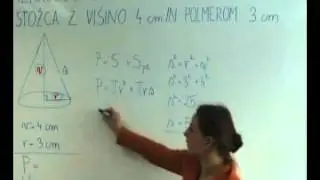 STOŽCA Z VIŠINO 4 cm IN POLMEROM 3 cm
v
s
r
v = 4 cm
r = 3 cm
P =
P = S + Spl
P = πr² + πrs
s² = r² + v²
s² = 3² + 4²
s² = 25
s = 5